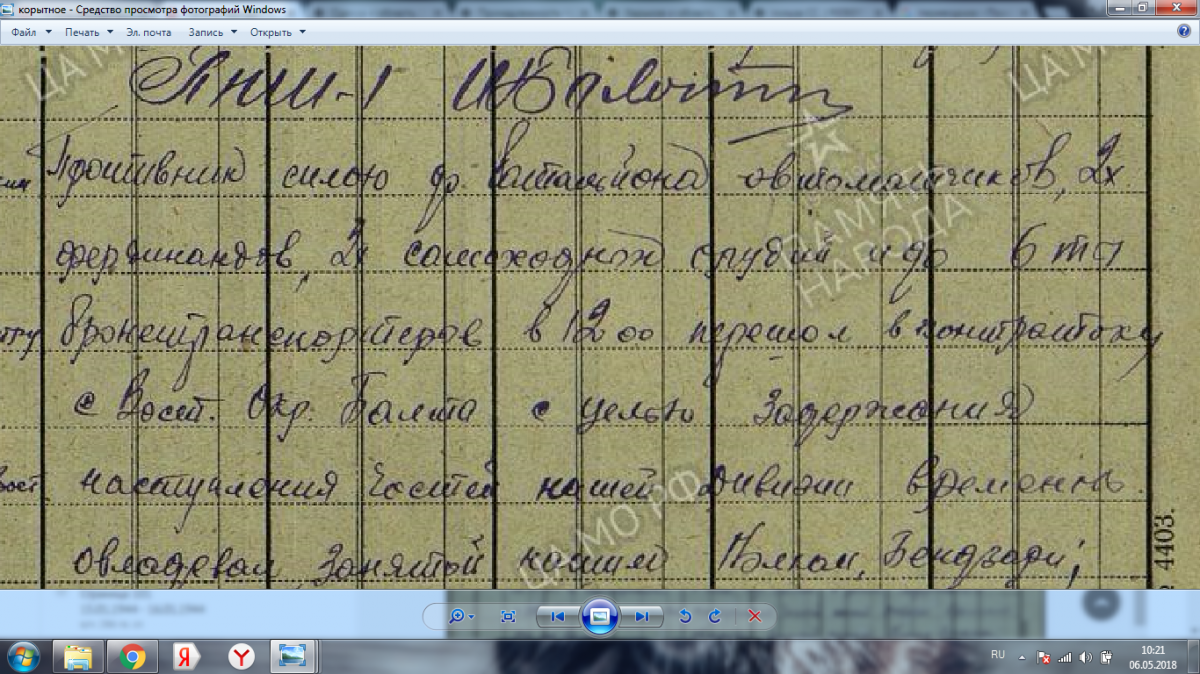 корытное - Средство просмотра фотографий Windows
Файл Печать Эл. почта Запись Открыть
ПНШ-1
Противник силою до батальйона автоматчиков, 2х
фердинандов, 2х самоходной орудий и до 6 ти
бронетранспортеров в 12 00 перешол в контратоку
с Вост. Окр. Балта с целью задержания
наступления частей нашей дивизии временно
овладевал занятой нашим Полком, Бендзари;
ЦА МО РФ
ПАМЯТЬ НАРОДА
4403.
RU
10:21
06.05.2018